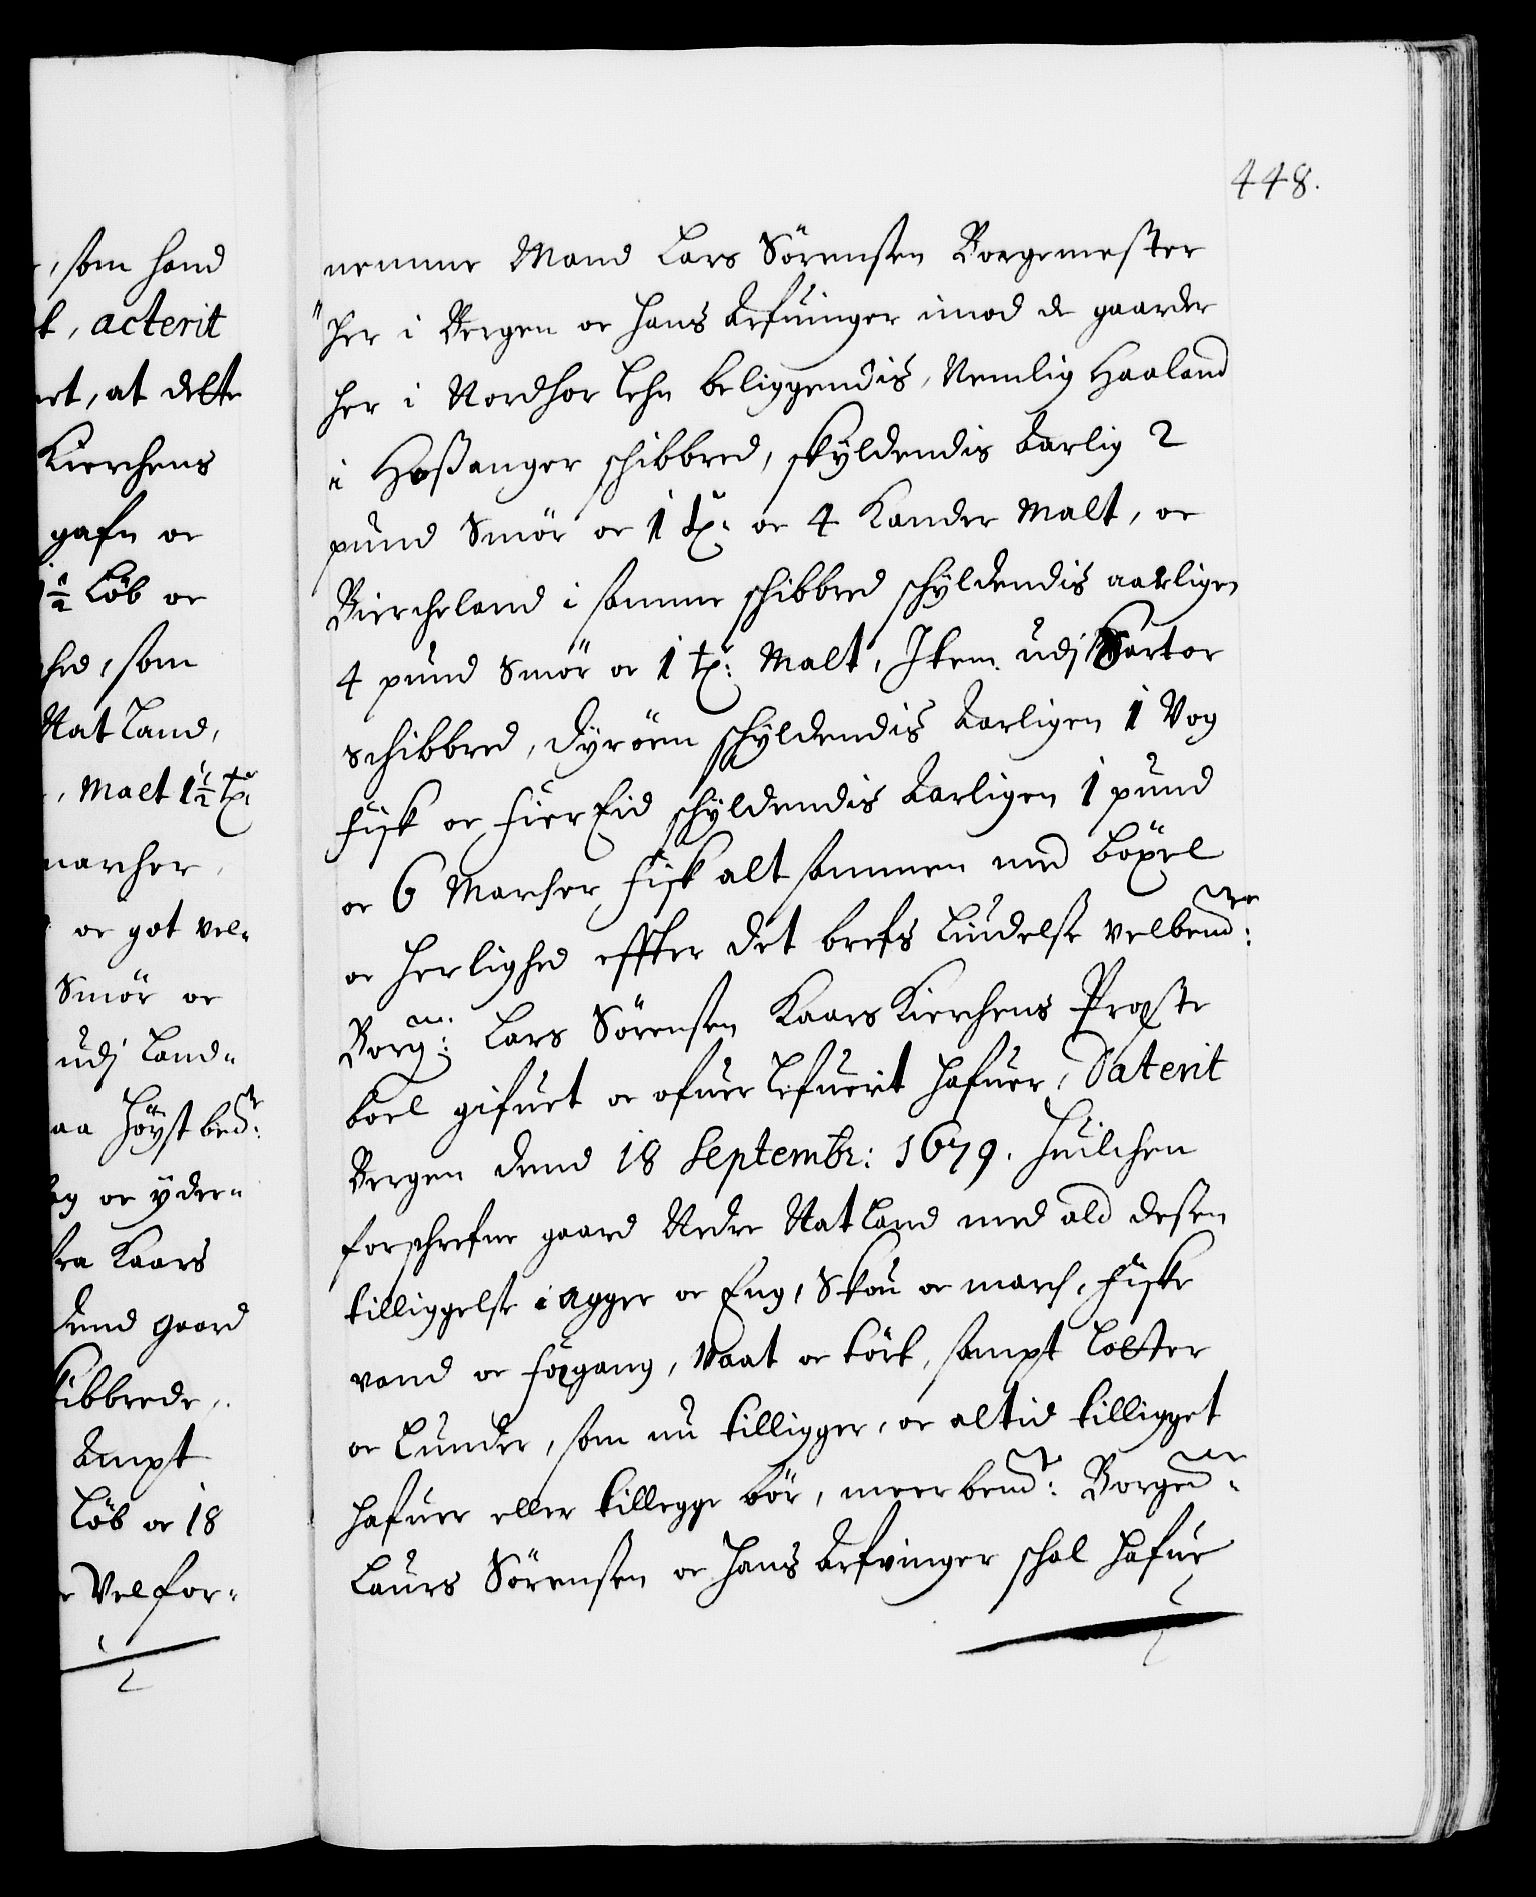 448.
, som hand
k, acterit
ret, at dette
Kierchens
gafn oc
1½ Løb oc
hed, som
Natland,
, Malt 1½ tp:
marcher,
oc got vel-
Smör oc
udj Land-
aa Höyst bemdte:
og oc ÿder-
fra Kaars
dend gaard
kibbrede,
Ampt
Løb oc 18
Velfor-
nemme Mand Lars Sörensen Borgemester
her i Bergen oc hans Arfuinger imod de gaarder
her i Nordhor Lehn beliggendis, Nemlig Haaland
i Hoßanger schibbred, skÿldendis Aarlig 2
pund Smör oc 1 tp: oc 4 Kander Malt, oc
Biercheland i samme schibbred schÿldendis aarligen
4 pund Smör oc 1 tp: Malt, Item udj Sartor
schibbred, Dÿröen schÿldendis Aarligen 1 Vog
fisk oc FierEid schÿldendis Aarligen 1 pund
oc 6 Marcher fisk alt sammen med böxel
oc herlighed effter det brefs liudelse velbemte:
Borgm: Lars Sörensen Kaars Kierchens Præste
boel gifuet oc ofuerlefuerit hafuer, Daterit
Bergen dend 18 Septembr: 1679. huilchen
forschrefne gaard Nedre Natland med ald desen
tilliggelse i Agger oc Eng, Skou oc march, fiske
vand oc fægang, Vaat oc tört, sampt Lotter
oc Lunder, som nu tilligger, oc altid tilligget
hafuer eller tillegge bör, meerbemte: Borgem:
Laurs Sörensen oc hans Arfvinger schal hafue